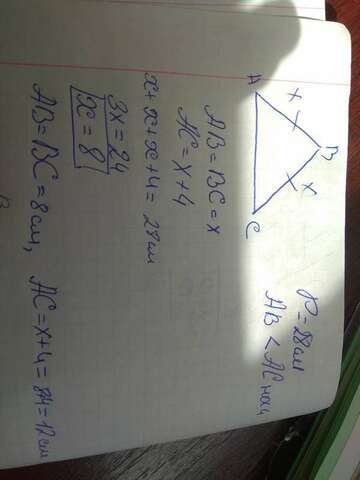 B
x x
A C
P = 28 см
AB < AC на 4
AB = BC = x
AC = x + 4
x + x + x + 4 = 28 см
3x = 24
x = 8
AB = BC = 8 см, AC = x + 4 = 8+4 = 12 см